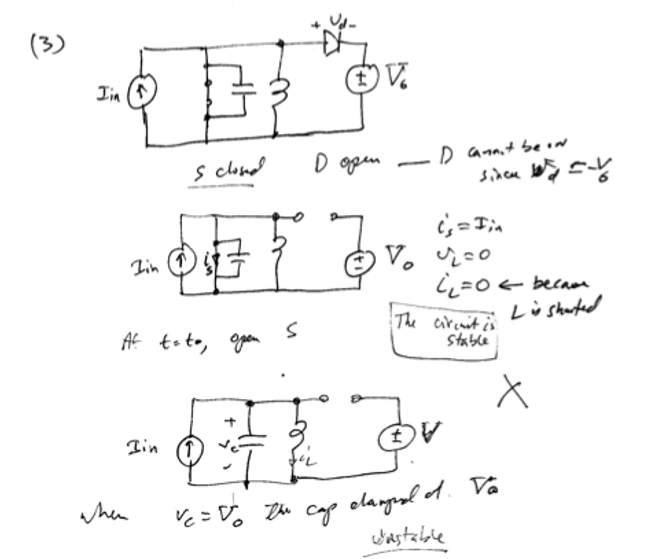 (3)
+ Vd -
Iin
V6
S closed D open — D cannot be on
since Vd = -V6
Iin
is
Vo
is = Iin
vL = 0
iL = 0 ← because
L is shorted
The circuit is
stable
At t = to, open S
X
Iin
+
vc
-
iL
V
when vc = Vo The cap clamped at Vo
Unstable